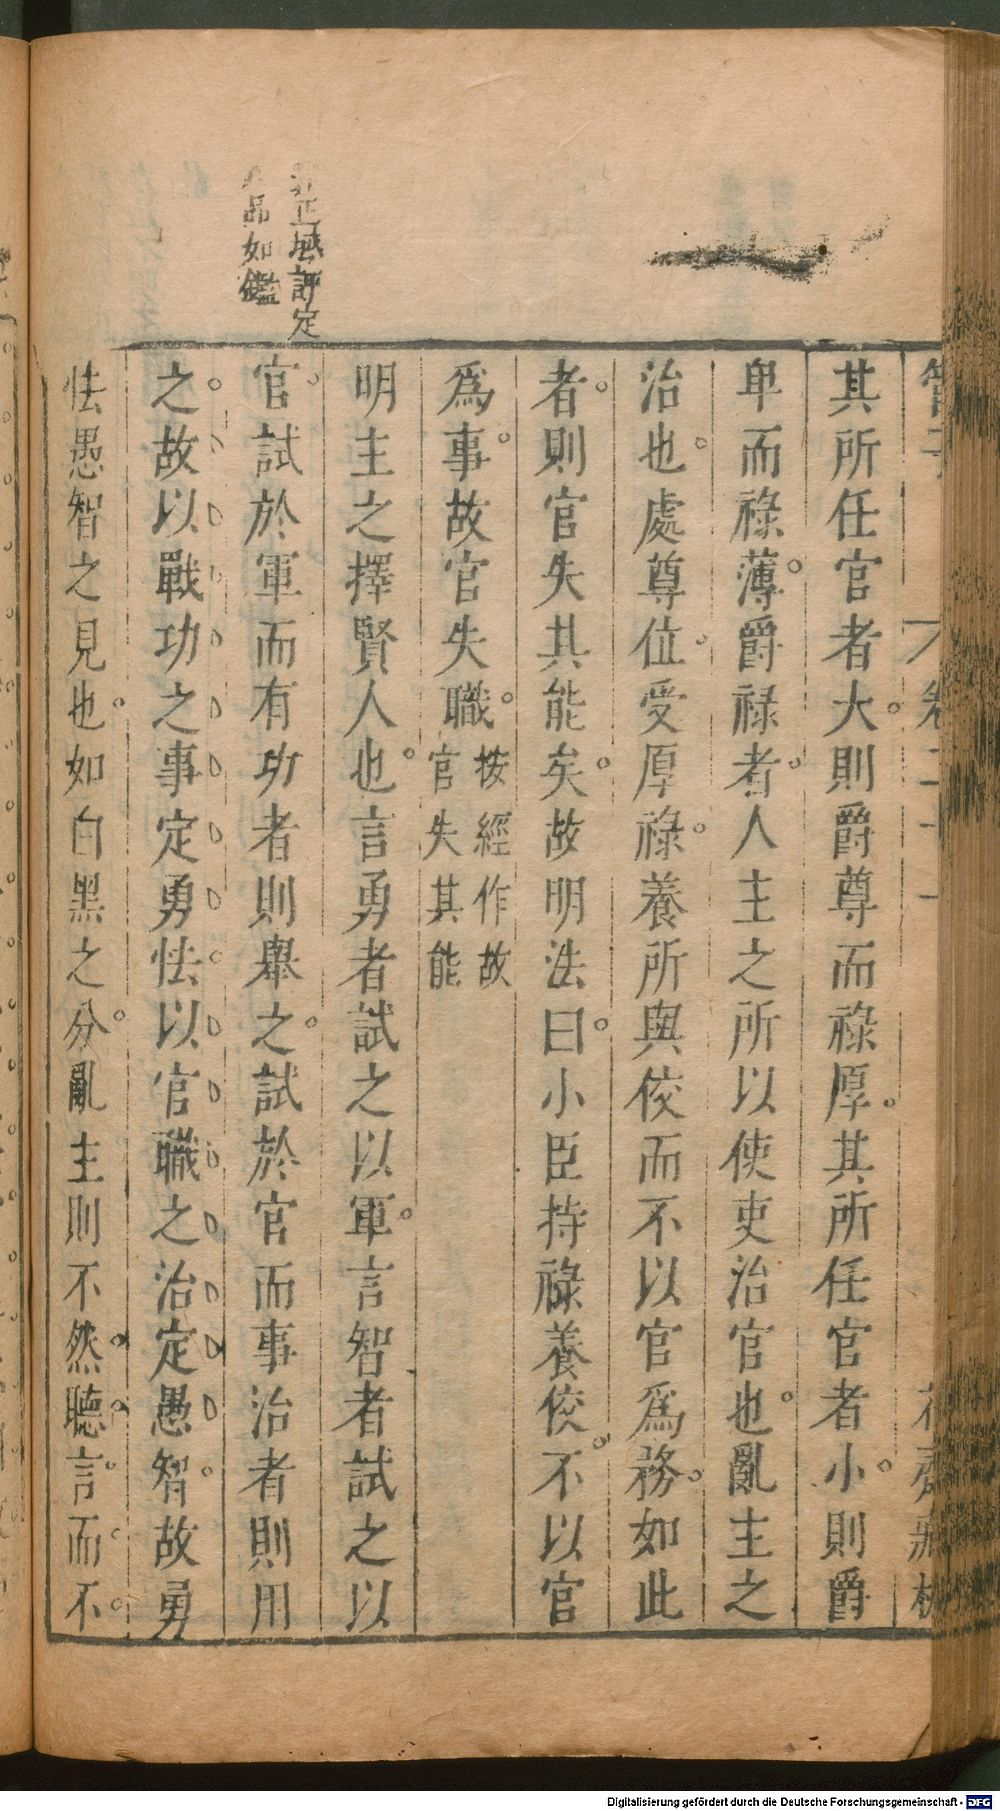 管子 卷二十一 花齋藏板
其所任官者大則爵尊而祿厚其所任官者小則爵
卑而祿薄爵祿者人主之所以使吏治官也亂主之
治也處尊位受厚祿養所與佼而不以官爲務如此
者則官失其能矣故明法曰小臣持祿養佼不以官
爲事故官失職按經作故官失其能
明主之擇賢人也言勇者試之以軍言智者試之以
官試於軍而有功者則舉之試於官而事治者則用
之故以戰功之事定勇怯以官職之治定愚智故勇
怯愚智之見也如白黑之分亂主則不然聽言而不
正域評定
品如鑑
Digitalisierung gefördert durch die Deutsche Forschungsgemeinschaft - DFG